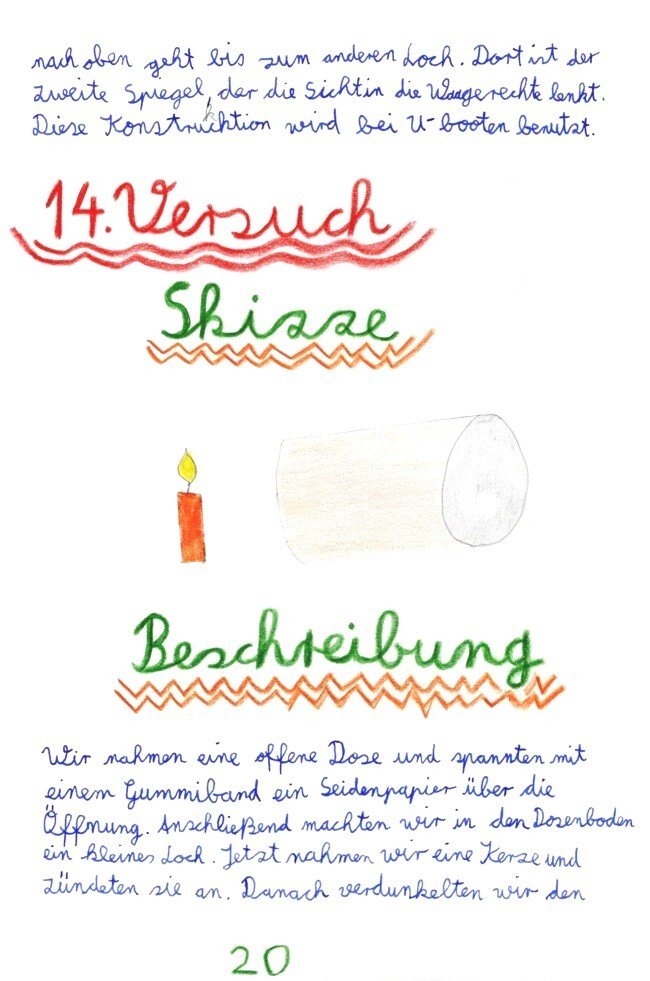 nach oben geht bis zum anderen Loch. Dort ist der
zweite Spiegel, der die Sicht in die Waagerechte lenkt.
Diese Konstrucktion wird bei U-booten benutzt.
14. Versuch
Skizze
Beschreibung
Wir nahmen eine offene Dose und spannten mit
einem Gummiband ein Seidenpapier über die
Öffnung. Anschließend machten wir in den Dosenboden
ein kleines Loch. Jetzt nahmen wir eine Kerze und
zündeten sie an. Danach verdunkelten wir den
20